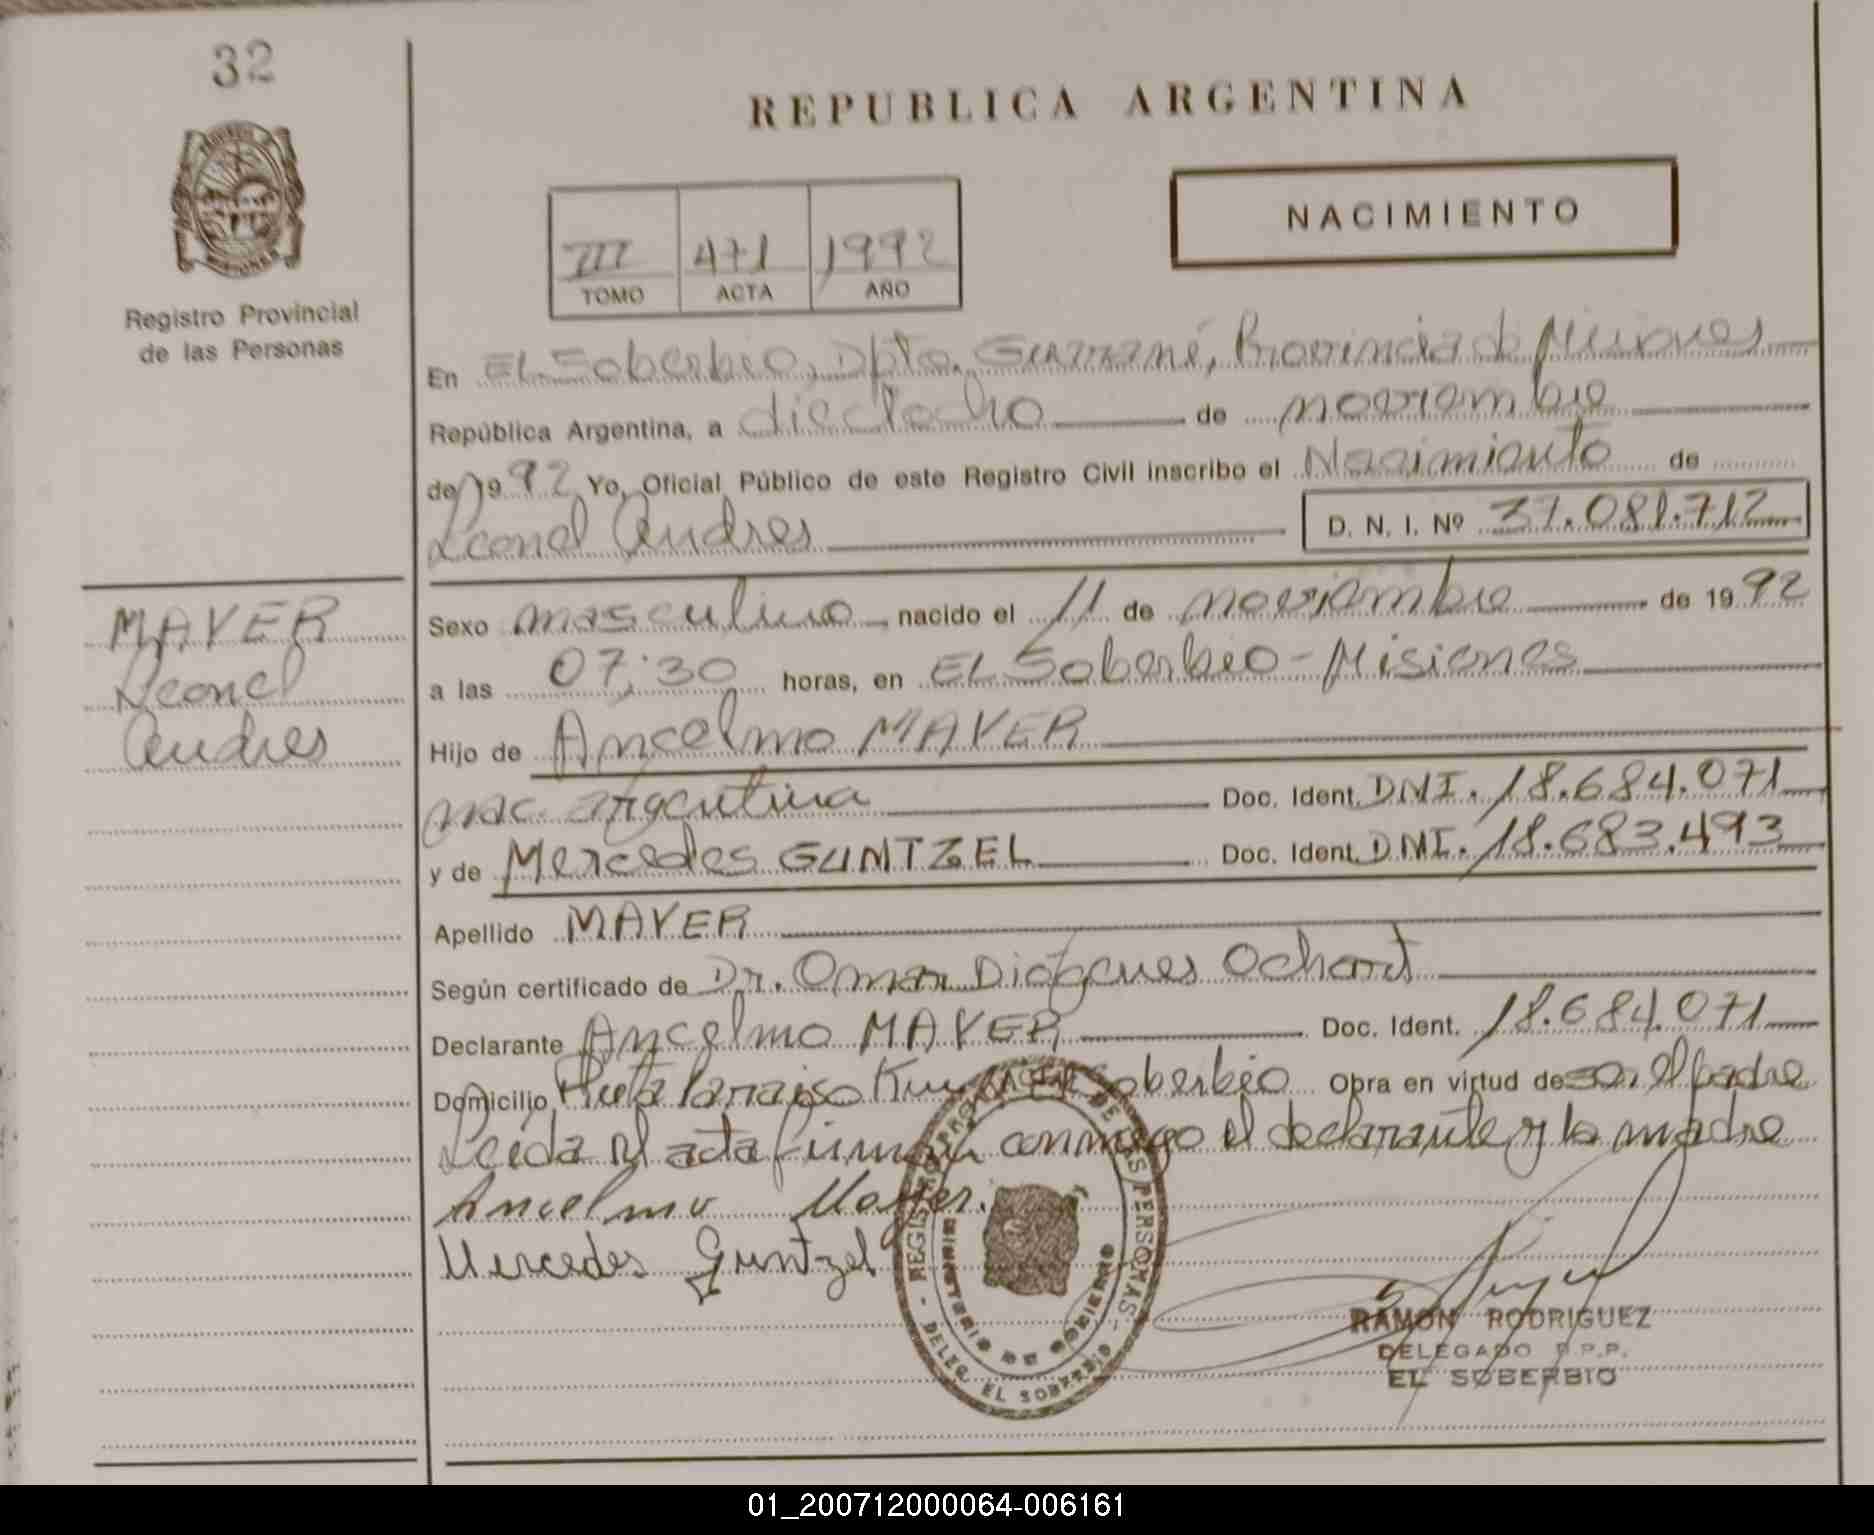 32
REPUBLICA ARGENTINA
NACIMIENTO
III 471 1992
TOMO ACTA AÑO
Registro Provincial
de las Personas
En EL Soberbio, Dpto. Guaraní, Provincia de Misiones
República Argentina, a dieciocho de noviembre
de 1992 Yo, Oficial Público de este Registro Civil inscribo el Nacimiento de
Leonel Andres D. N. I. Nº 37.081.712
MAYER
Leonel
Andres
Sexo masculino nacido el 11 de noviembre de 1992
a las 07:30 horas, en EL Soberbio - Misiones
Hijo de Ancelmo MAYER
nac. argentina Doc. Ident. DNI. 18.684.071
y de Mercedes GUNTZEL Doc. Ident. DNI. 18.683.493
Apellido MAYER
Según certificado de Dr. Omar Diógenes Ochard
Declarante Ancelmo MAYER Doc. Ident. 18.684.071
Domicilio Ruta Paraiso Soberbio Obra en virtud de ser el padre
Leída el acta firman conmigo el declarante y la madre
Ancelmo Mayer.
Mercedes Guntzel
REGISTRO PROVINCIAL DE LAS PERSONAS - DELEG. EL SOBERBIO -
MINISTERIO DE GOBIERNO
RAMON RODRIGUEZ
DELEGADO R.P.P.
EL SOBERBIO
01_200712000064-006161